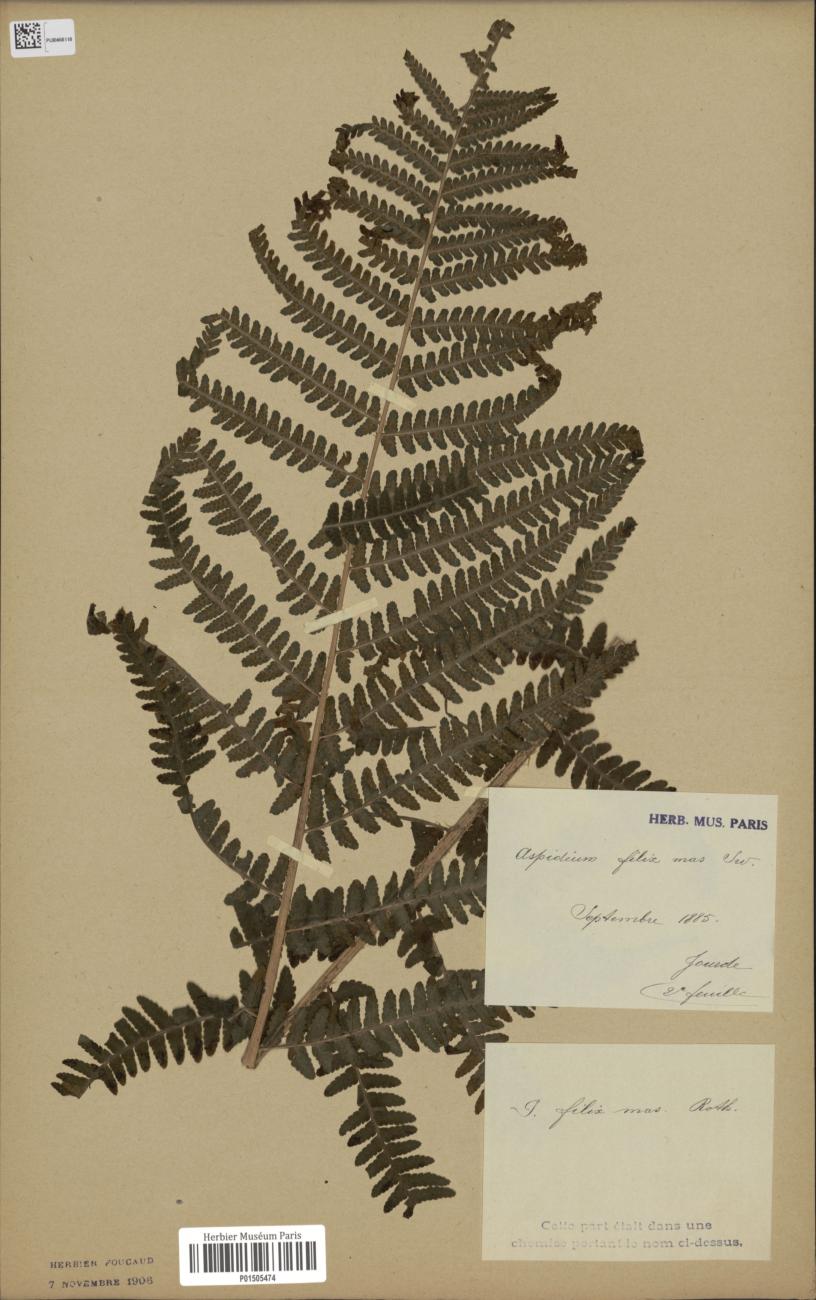 HERB. MUS. PARIS
Aspidium filix mas Sw.
Septembre 1885.
Jousde
(2e feuille
P. filix mas. Roth.
Cette part était dans une
chemise portant le nom ci-dessus.
HERBIER FOUCAUD
7 NOVEMBRE 1906
Herbier Muséum Paris
P01505474